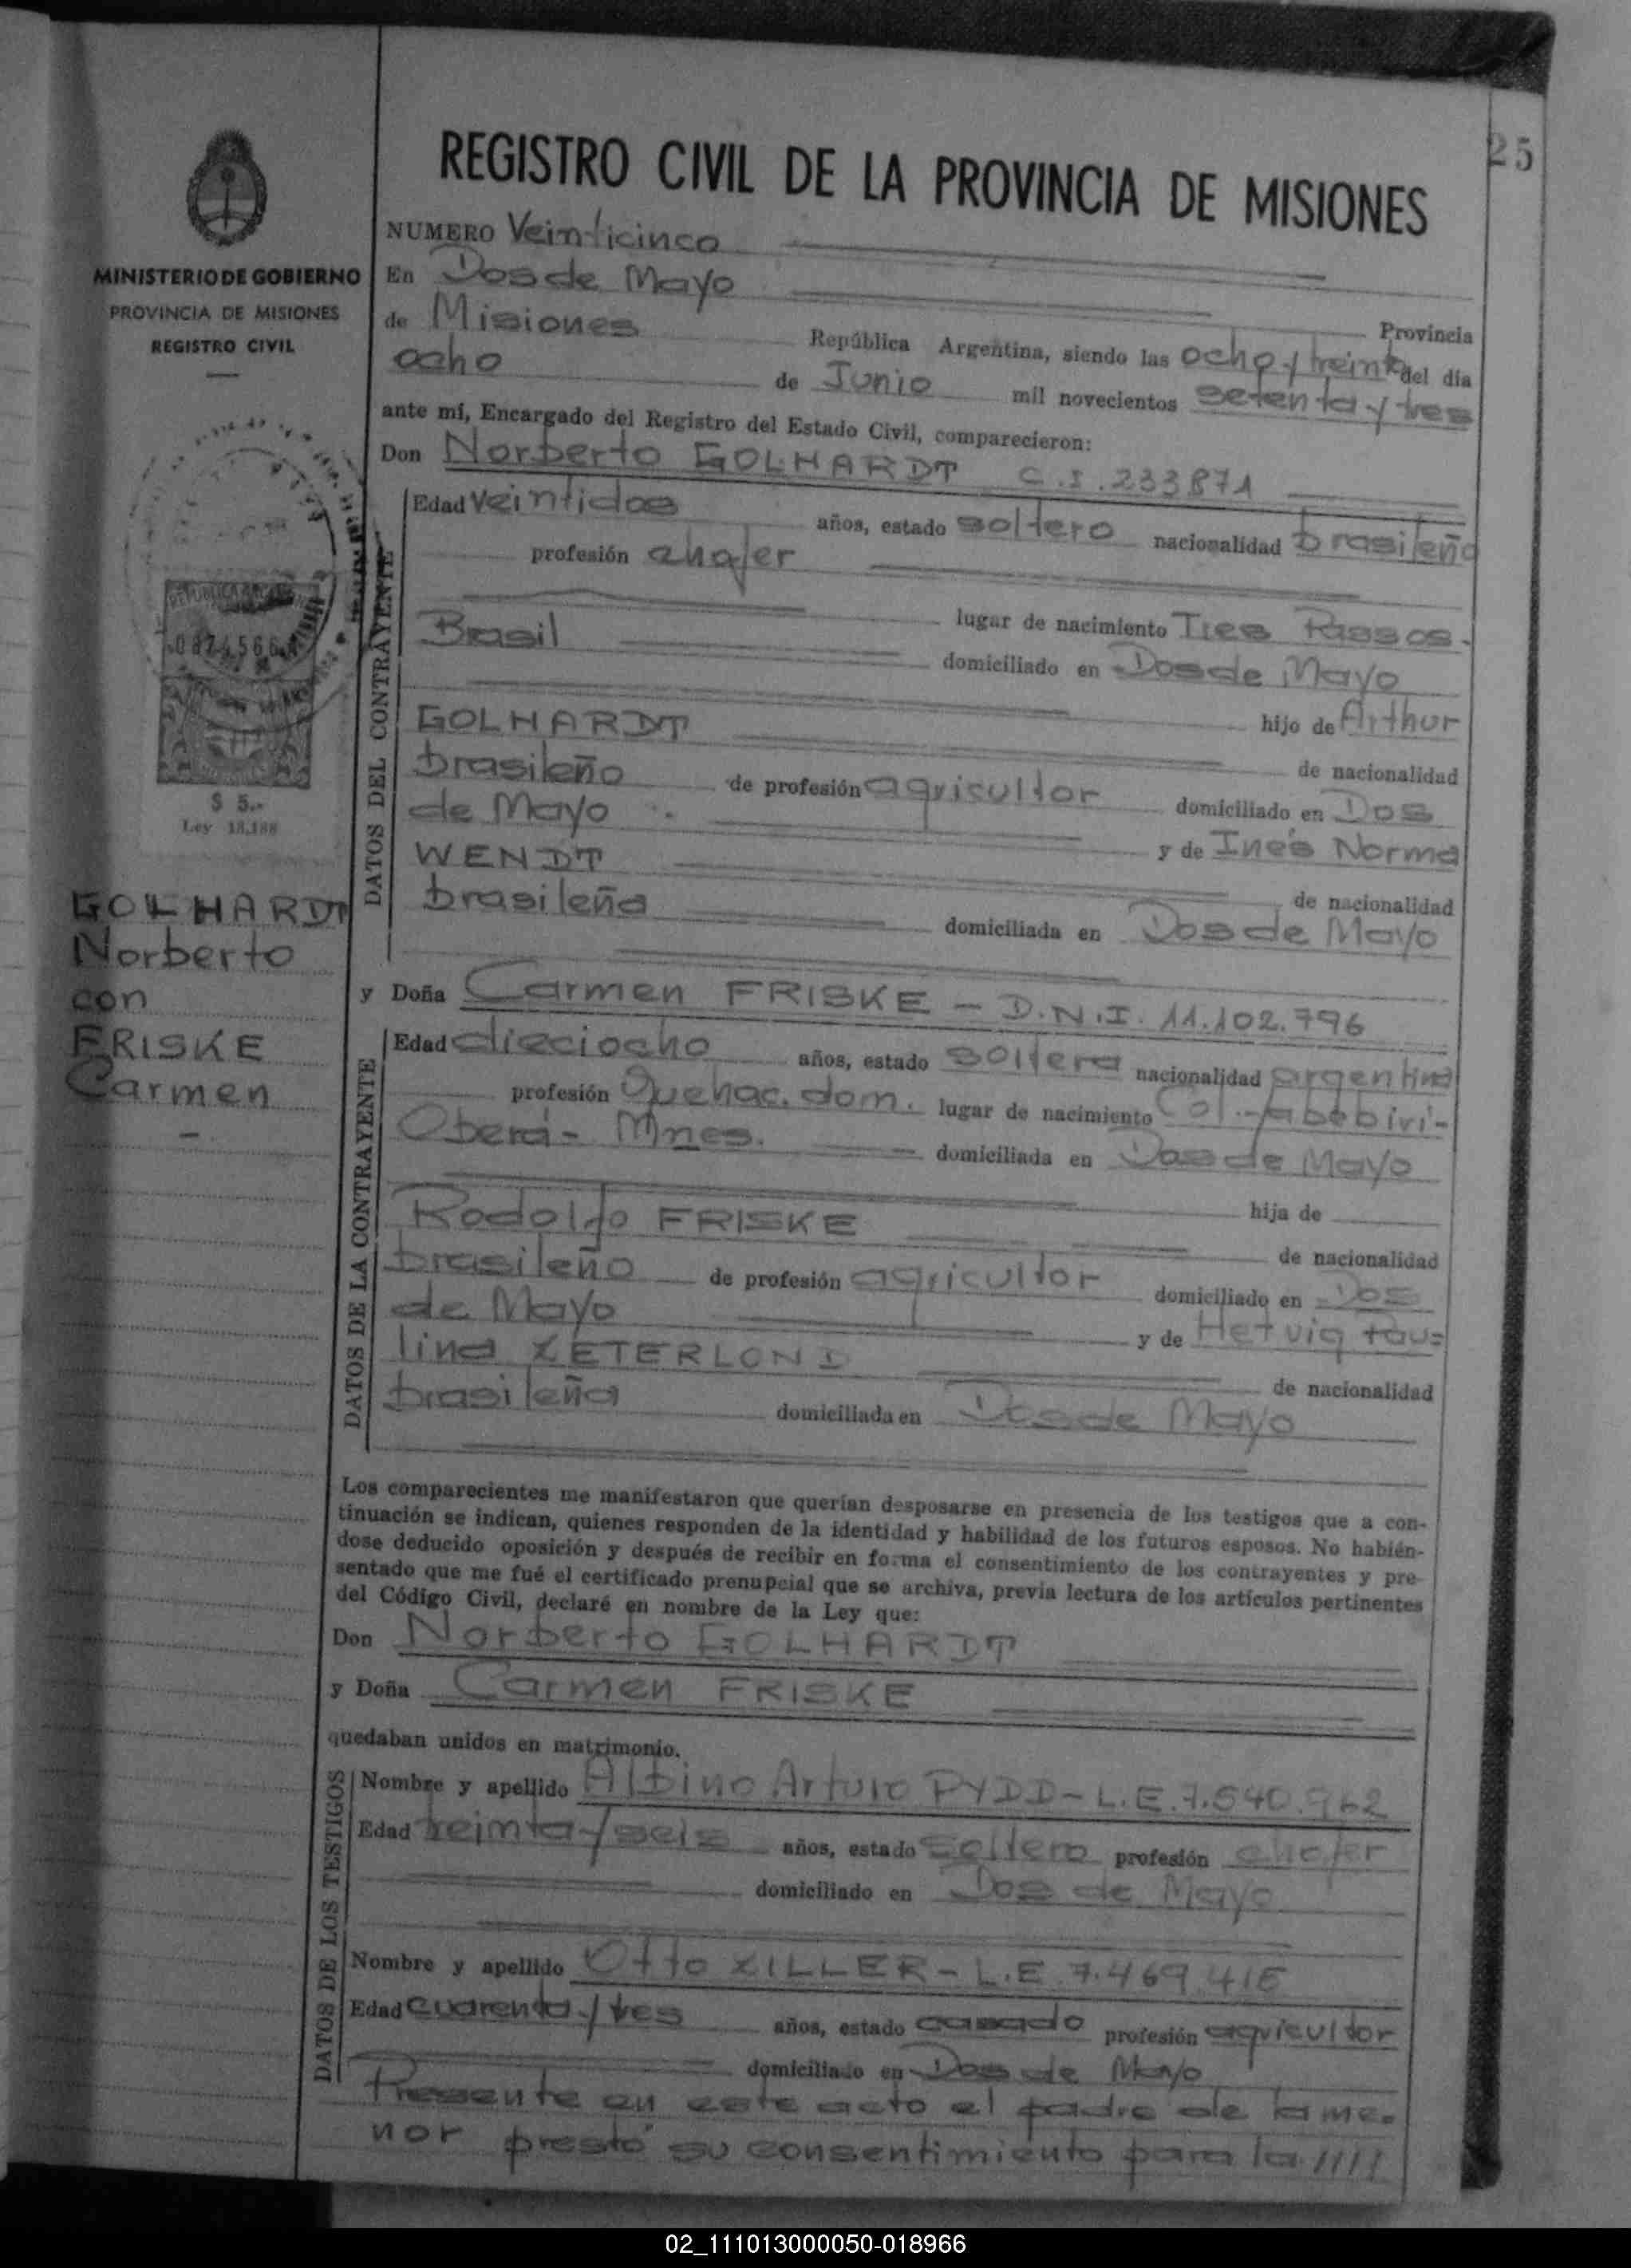 25
REGISTRO CIVIL DE LA PROVINCIA DE MISIONES
MINISTERIO DE GOBIERNO
PROVINCIA DE MISIONES
REGISTRO CIVIL
$ 5.-
Ley 18.188
GOLHARDT
Norberto
con
FRISKE
Carmen
NUMERO Veinticinco
En Dos de Mayo
Provincia
de Misiones República Argentina, siendo las ocho y treinta del día
ocho de Junio mil novecientos setenta y tres
ante mí, Encargado del Registro del Estado Civil, comparecieron:
Don Norberto GOLHARDT C.I. 233871
DATOS DEL CONTRAYENTE
Edad veintidos años, estado soltero nacionalidad brasileño
profesión chofer
lugar de nacimiento Tres Passos-
Brasil domiciliado en Dos de Mayo
hijo de Arthur
GOLHARDT de nacionalidad
brasileño de profesión agricultor domiciliado en Dos
de Mayo y de Inés Norma
WENDT de nacionalidad
brasileña domiciliada en Dos de Mayo
y Doña Carmen FRISKE - D.N.I. 11.102.796
DATOS DE LA CONTRAYENTE
Edad dieciocho años, estado soltera nacionalidad argentina
profesión Quehac. dom. lugar de nacimiento Col. Yabebirí-
Oberá- Mnes. domiciliada en Dos de Mayo
hija de
Rodolfo FRISKE de nacionalidad
brasileño de profesión agricultor domiciliado en Dos
de Mayo y de Hetvig Pau=
lina ZETERLOND de nacionalidad
brasileña domiciliada en Dos de Mayo
Los comparecientes me manifestaron que querían desposarse en presencia de los testigos que a con-
tinuación se indican, quienes responden de la identidad y habilidad de los futuros esposos. No habién-
dose deducido oposición y después de recibir en forma el consentimiento de los contrayentes y pre-
sentado que me fué el certificado prenupcial que se archiva, previa lectura de los artículos pertinentes
del Código Civil, declaré en nombre de la Ley que:
Don Norberto GOLHARDT
y Doña Carmen FRISKE
quedaban unidos en matrimonio.
DATOS DE LOS TESTIGOS
Nombre y apellido Albino Arturo PYDD - L.E. 7.540.962
Edad treinta y seis años, estado soltero profesión chofer
domiciliado en Dos de Mayo
Nombre y apellido Otto ZILLER - L.E. 7.469.415
Edad cuarenta y tres años, estado casado profesión agricultor
domiciliado en Dos de Mayo
Presente en este acto el padre de la me-
nor prestó su consentimiento para la ////
02_111013000050-018966